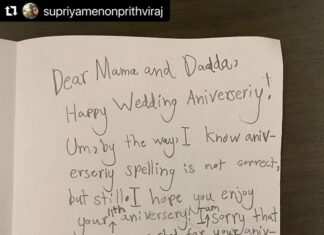 supriyamenonprithviraj
Dear Mama and Dadda,
Happy Wedding Aniverseriy!
Um, by the way, I know aniv-
erseriy spelling is not correct,
but still. I hope you enjoy
your 11th aniversery! I am sorry that
for your aniv-